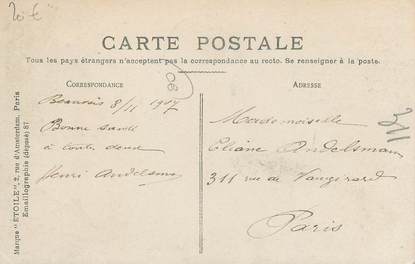 20 €
CARTE POSTALE
Tous les pays étrangers n'acceptent pas la correspondance au recto. Se renseigner à la poste.
CORRESPONDANCE
ADRESSE
Beauvais 8/11 1907
Bonne santé
à toutes deux
Henri Andelsman
Mademoiselle
Eliane Andelsman
311 rue de Vaugirard
Paris
Marque "ÉTOILE", 2, rue d'Amsterdam, Paris
Emaillographie (déposé) 87